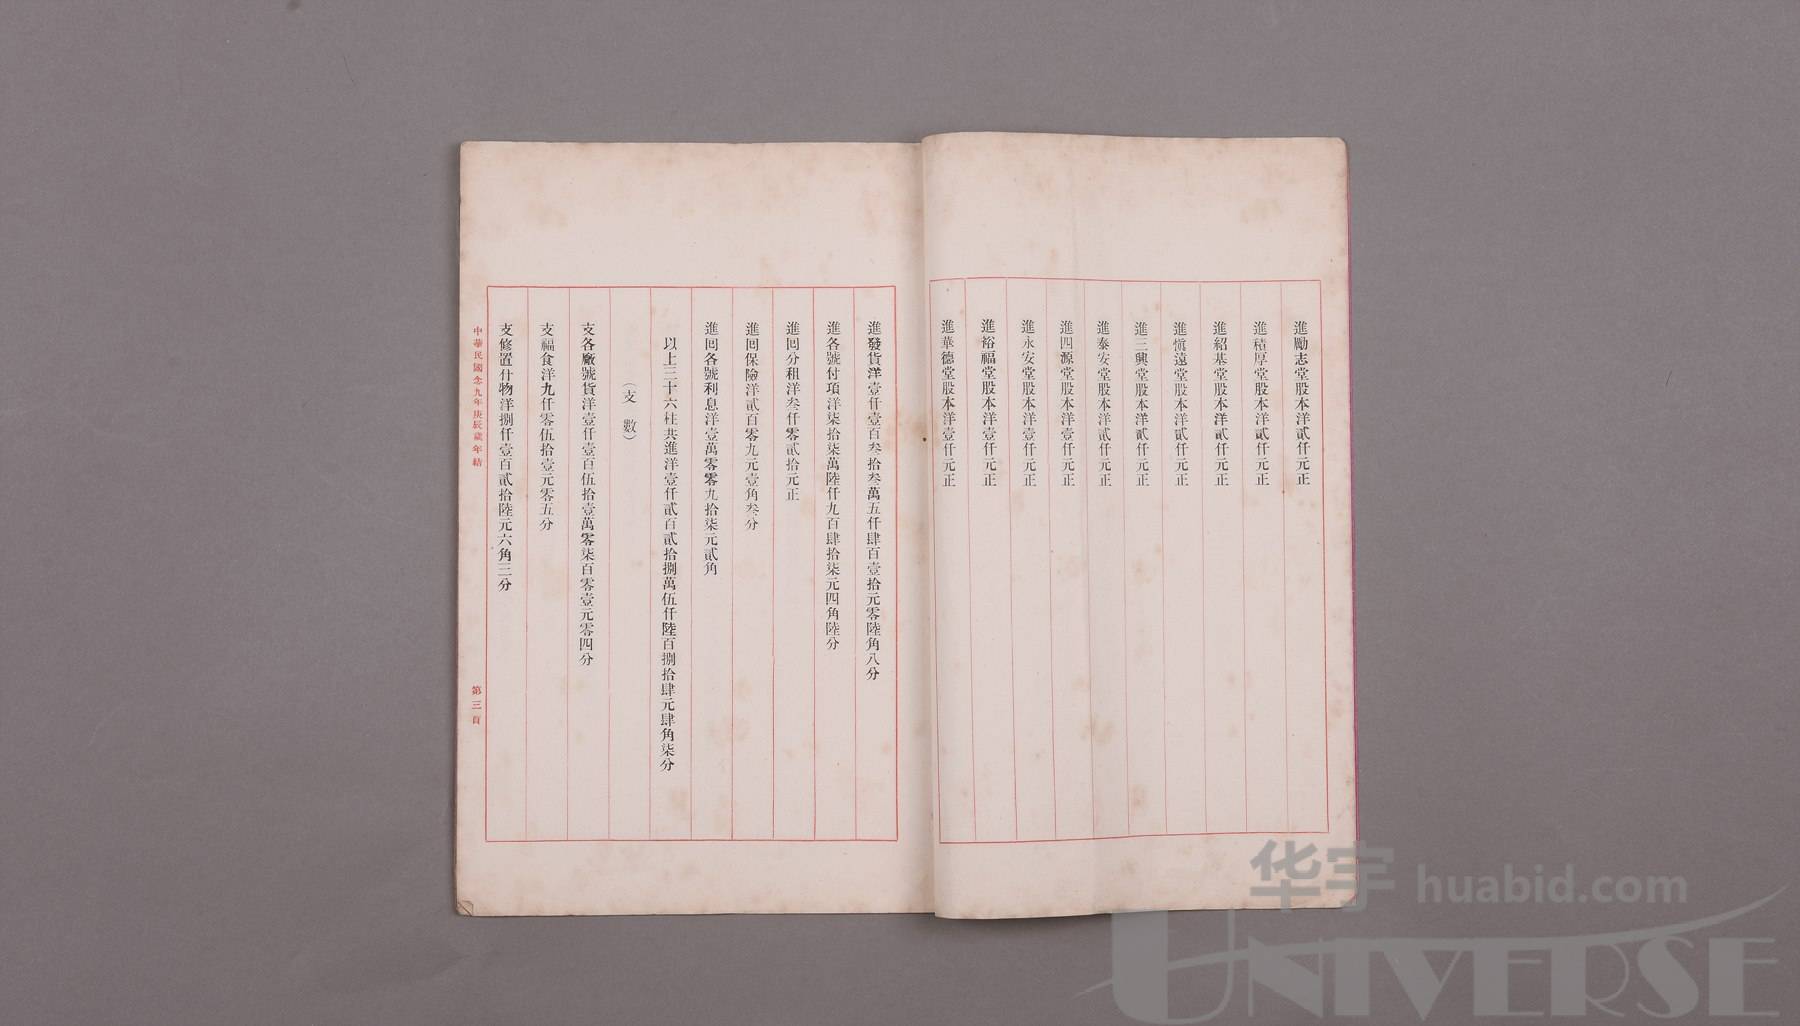 進勵志堂股本洋貳仟元正
進積厚堂股本洋貳仟元正
進紹基堂股本洋貳仟元正
進愼遠堂股本洋貳仟元正
進三興堂股本洋貳仟元正
進泰安堂股本洋貳仟元正
進四源堂股本洋壹仟元正
進永安堂股本洋壹仟元正
進裕福堂股本洋壹仟元正
進華德堂股本洋壹仟元正
進發貨洋壹仟壹百叁拾叁萬五仟肆百壹拾元零陸角八分
進各號付項洋柒拾柒萬陸仟九百肆拾柒元四角陸分
進回分租洋叁仟零貳拾元正
進回保險洋貳百零九元壹角叁分
進回各號利息洋壹萬零零九拾柒元貳角
以上三十六柱共進洋壹仟貳百貳拾捌萬伍仟陸百捌拾肆元肆角柒分
（支數）
支各廠號貨洋壹仟壹百伍拾壹萬零柒百零壹元零四分
支福食洋九仟零伍拾壹元零五分
支修置什物洋捌仟壹百貳拾陸元六角三分
中華民國念九年庚辰歲年結
第三頁
华宇 huabid.com
UNIVERSE